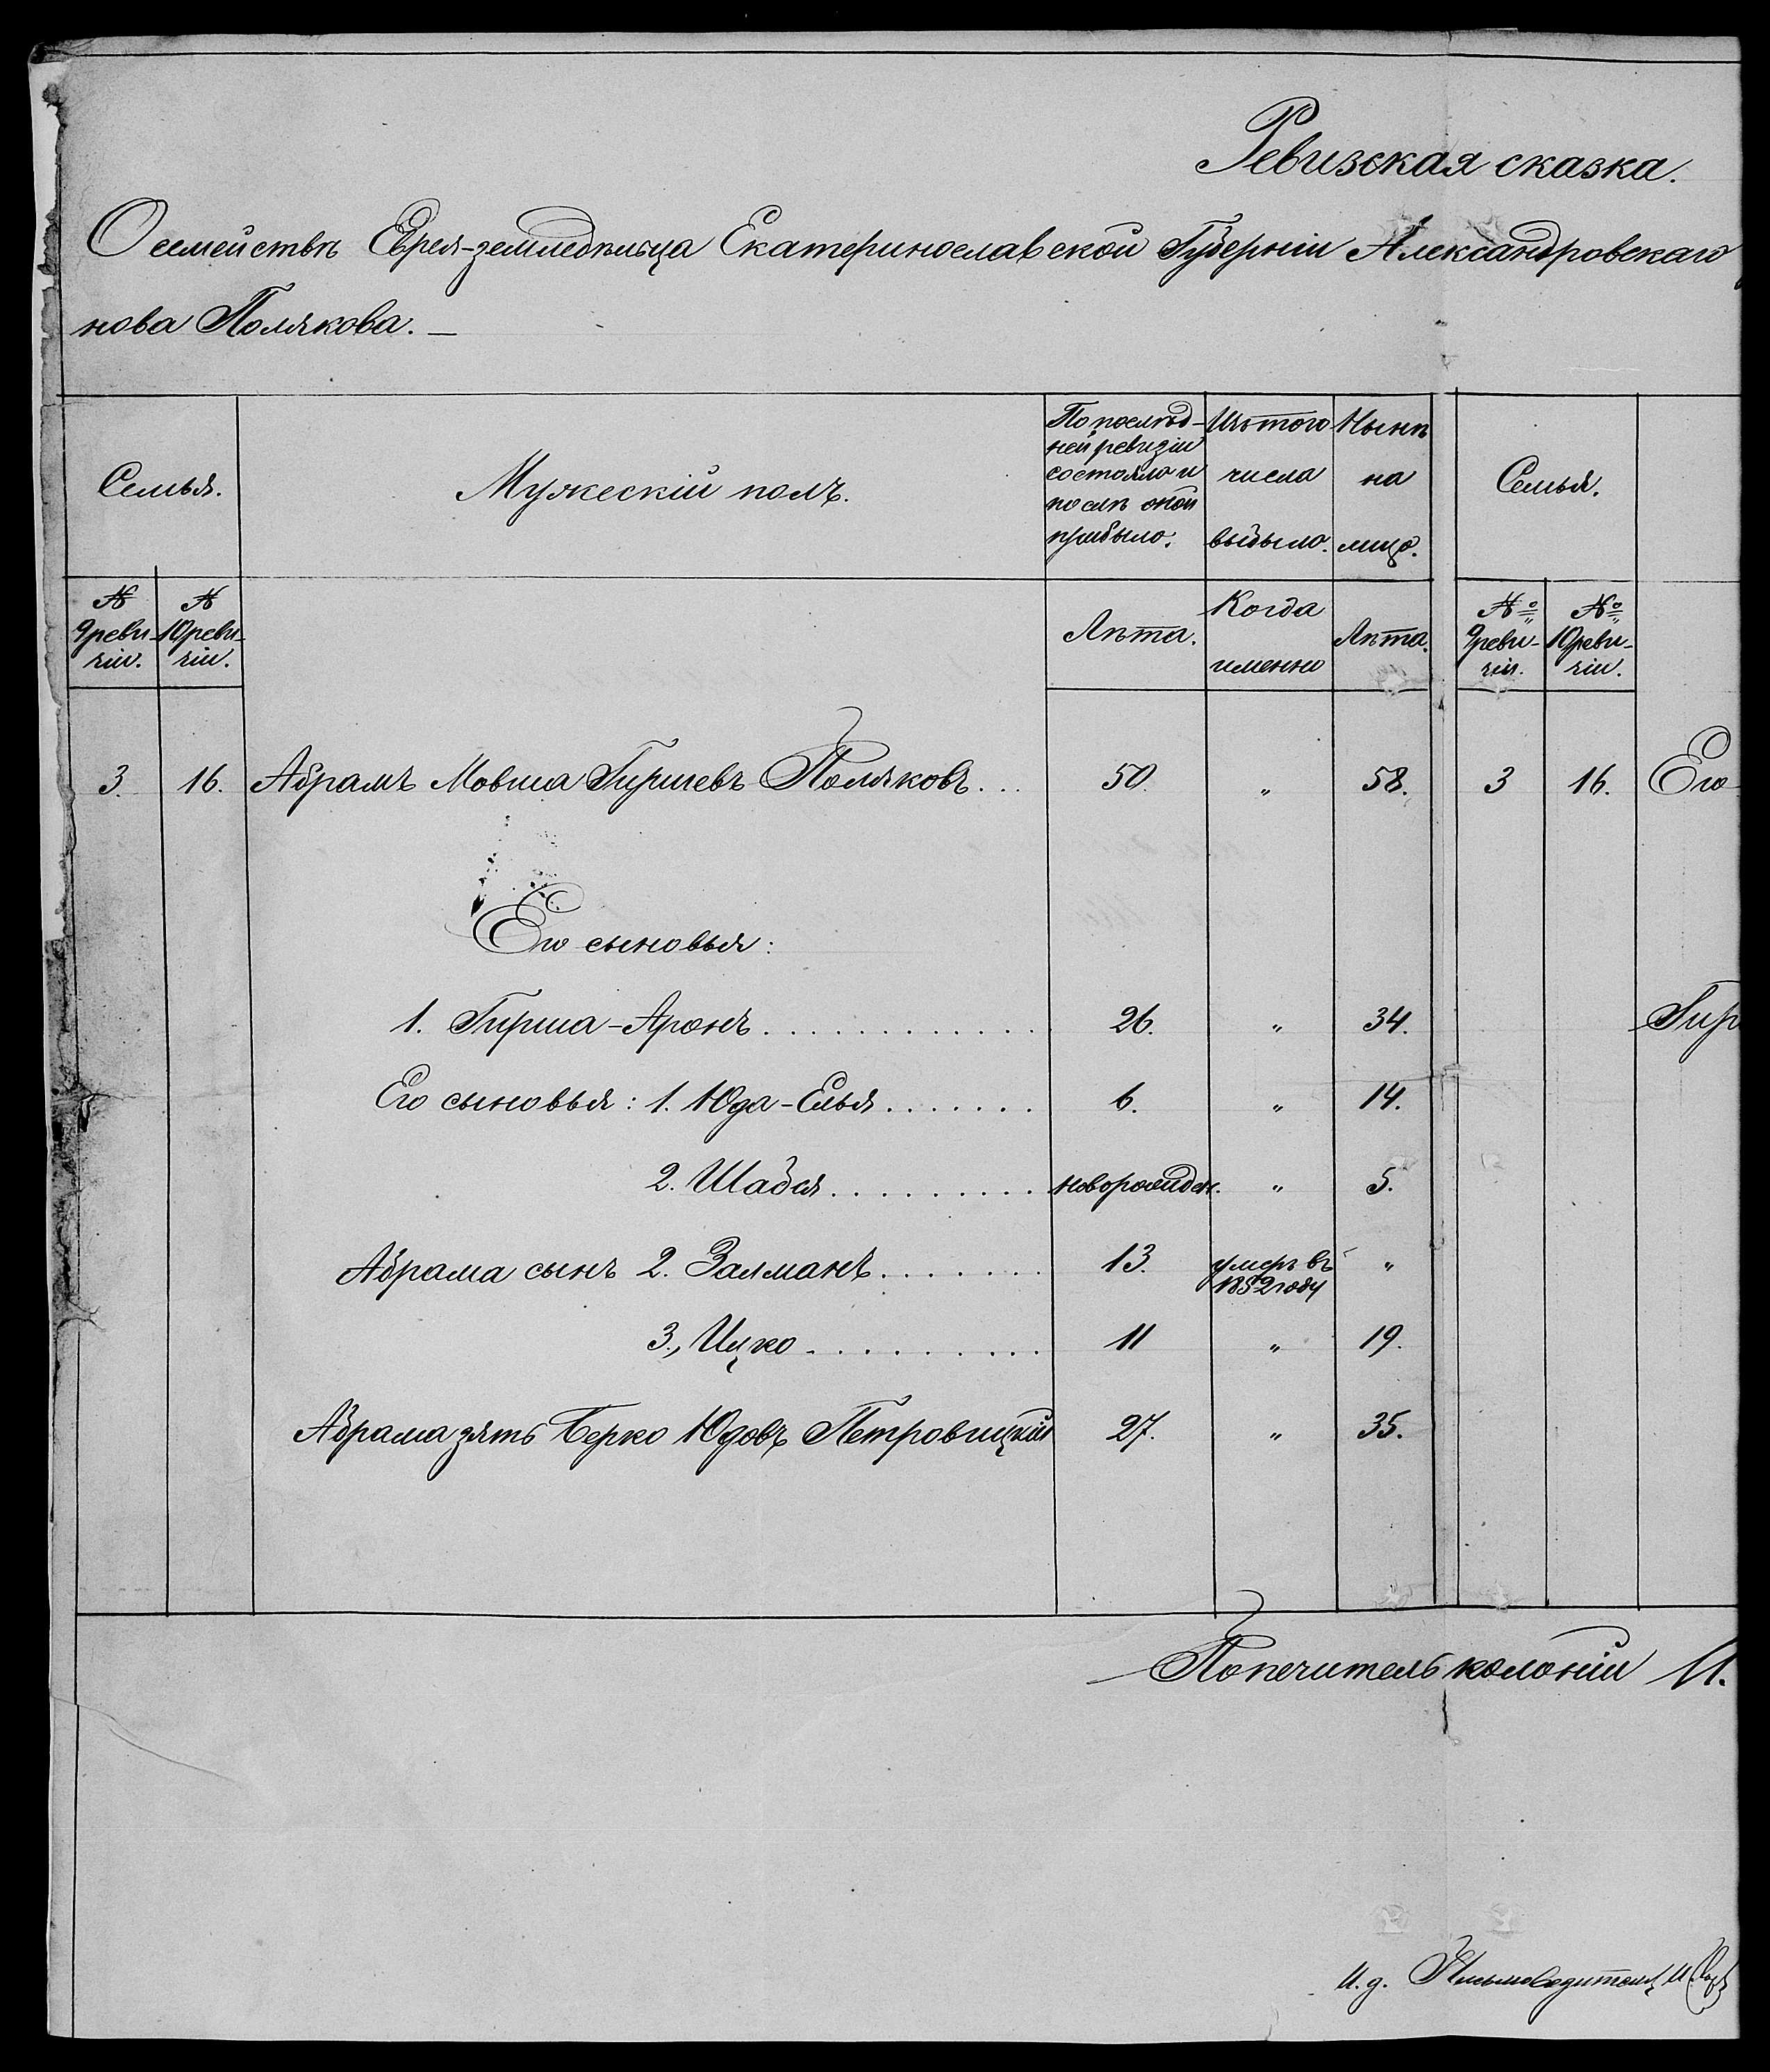 Ревизская сказка.
О семействѣ Еврея-земледѣльца Екатеринославской Губерніи Александровскаго
нова Полякова. —
Семья.
Мужескій полъ.
По послѣд-
ней ревизіи
состояло и
послѣ оной
прибыло.
Изъ того
числа
выбыло.
Нынѣ
на
лицо.
Семья.
№ 9 реви-
зіи.
№ 10 реви-
зіи.
Лѣта.
Когда
именно
Лѣта.
№ 9 реви-
зіи.
№ 10 реви-
зіи.
3. 16. Абрамъ Мовша Гиршевъ Поляковъ... 50. „ 58. 3 16. Его
Его сыновья:
1. Гирша-Аронъ............. 26. „ 34. Гир
Его сыновья: 1. Юда-Елья....... 6. „ 14.
2. Шабся.......... новорожден. „ 5.
Абрама сынъ 2. Залманъ....... 13. умеръ въ „
1852 году
3., Ицко.......... 11 „ 19.
Абрама зять Берко Юдовъ Петровицкій 27. „ 35.
Попечитель колоніи И.
И. д. Письмоводителя